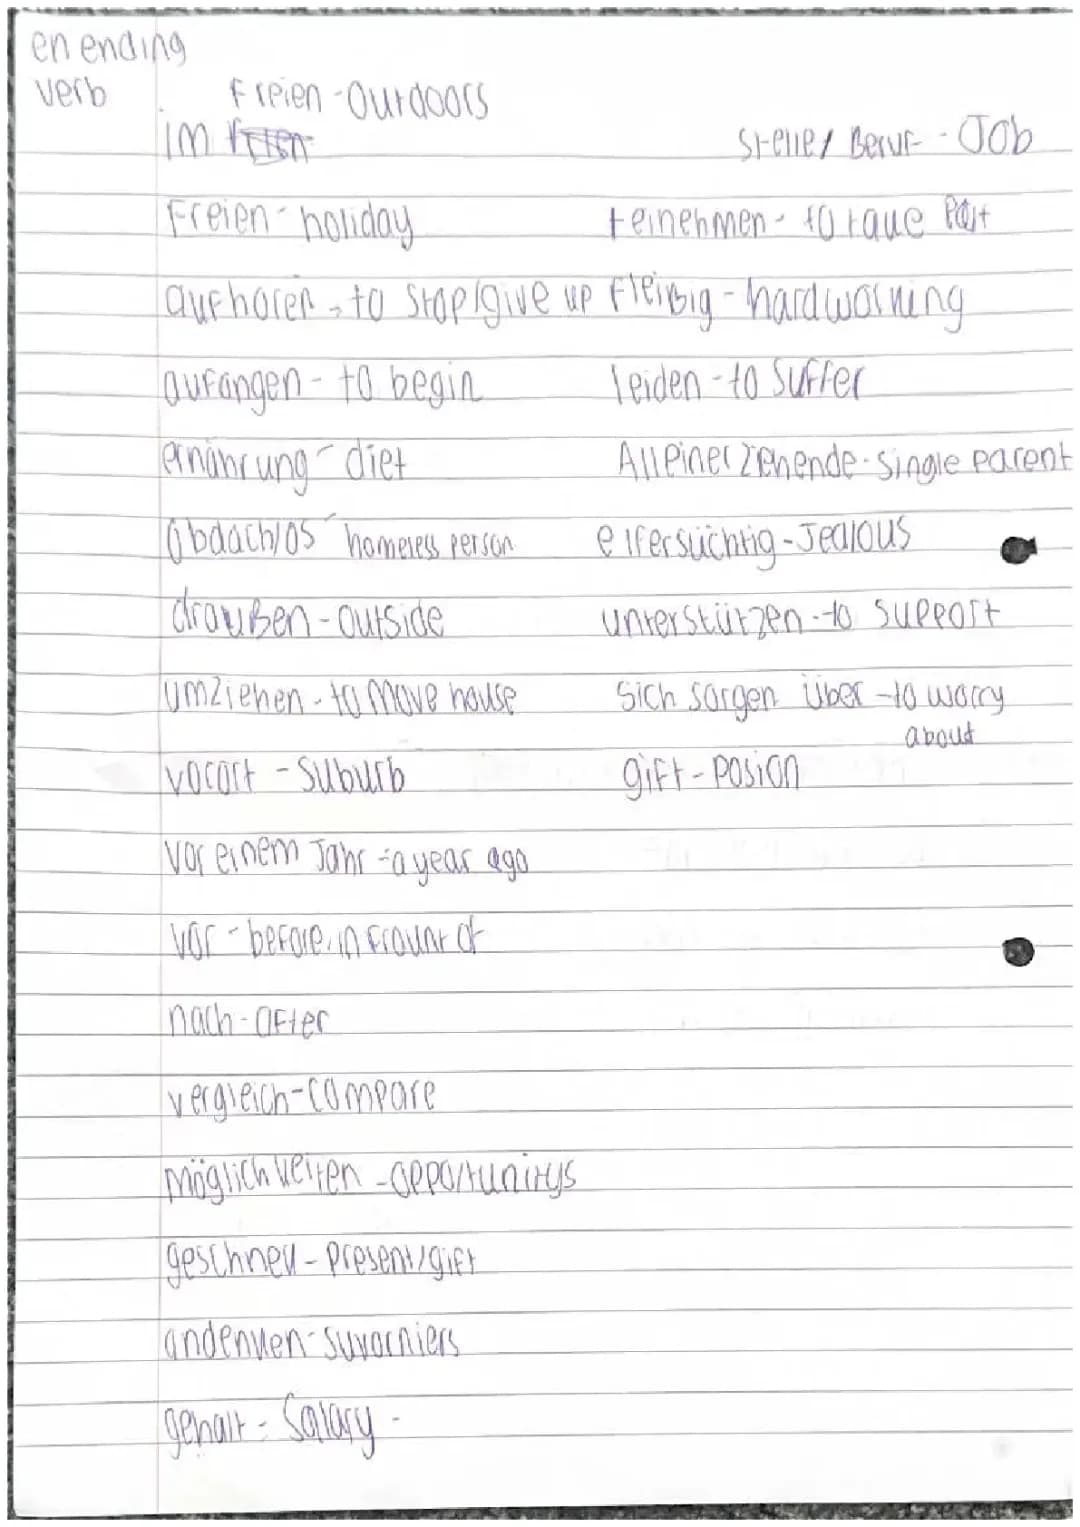 en ending
verb
Freien - Outdoors
im
Stelle / Beruf - Job
Freien - holiday
teinehmen - to take Part
aufhoren - to stop/give up
fleißig - hardworking
aufangen - to begin
leiden - to suffer
ernährung - diet
Alleinerziehende - single parent
Obdachlos - homeless person
eifersüchtig - Jealous
draußen - outside
unterstützen - to support
umziehen - to move house
Sich sorgen über - to worry
about
vorort - suburb
gift - posion
vor einem Jahr - a year ago
vor - before, in frount of
nach - after
vergleich - compare
möglichkeiten - opportunitys
geschnek - present/gift
andenken - suvorniers
gehalt - Salary -